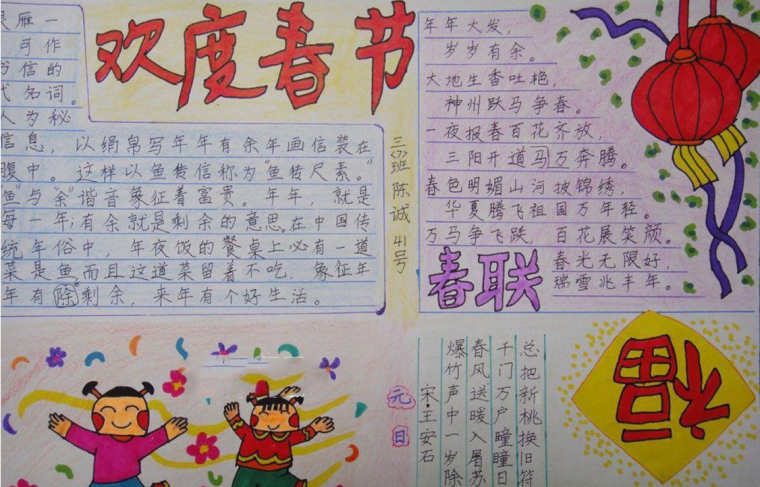 欢度春节
雁一
可作
书信的
代名词。
人为秘
信息，以绢帛写年年有余年画信装在
腹中。这样以鱼传信称为“鱼传尺素。”
鱼”与“余”谐音象征着富贵。年年，就是
每一年;有余就是剩余的意思,在中国传
统年俗中，年夜饭的餐桌上必有一道
菜是鱼而且这道菜留着不吃，象征年
年有除剩余，来年有个好生活。
三〈7〉班 陈诚 41号
年年大发，
岁岁有余。
大地生香吐艳，
神州跃马争春。
一夜报春百花齐放，
三阳开道马万奔腾。
春色明媚山河披锦绣，
华夏腾飞祖国万年轻。
万马争飞跃，百花展笑颜。
春光无限好，
瑞雪兆丰年。
春联
元日
宋·王安石
爆竹声中一岁除
春风送暖入屠苏
千门万户瞳瞳日
总把新桃换旧符
福